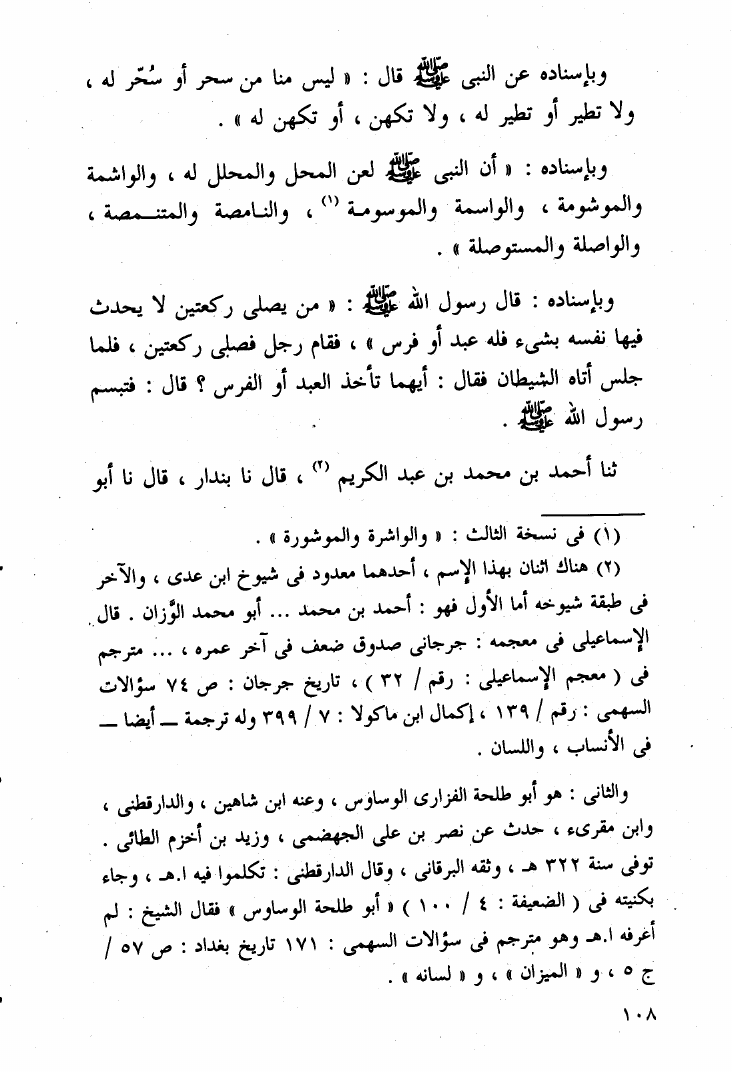 وبإسناده عن النبى ﷺ قال : « ليس منا من سحر أو سُحّر له ،
ولا تطير أو تطير له ، ولا تكهن ، أو تكهن له » .
وبإسناده : « أن النبى ﷺ لعن المحل والمحلل له ، والواشمة
والموشومة ، والواسمة والموسومة (١) ، والنامصة والمتنمصة ،
والواصلة والمستوصلة » .
وبإسناده : قال رسول الله ﷺ : « من يصلى ركعتين لا يحدث
فيها نفسه بشىء فله عبد أو فرس » ، فقام رجل فصلى ركعتين ، فلما
جلس أتاه الشيطان فقال : أيهما تأخذ العبد أو الفرس ؟ قال : فتبسم
رسول الله ﷺ .
ثنا أحمد بن محمد بن عبد الكريم (٢) ، قال نا بندار ، قال نا أبو
(١) فى نسخة الثالث : « والواشرة والموشورة » .
(٢) هناك اثنان بهذا الإسم ، أحدهما معدود فى شيوخ ابن عدى ، والآخر
فى طبقة شيوخه أما الأول فهو : أحمد بن محمد ... أبو محمد الوَّزان . قال
الإسماعيلى فى معجمه : جرجانى صدوق ضعف فى آخر عمره ، ... مترجم
فى ( معجم الإسماعيلى : رقم / ٣٢ ) ، تاريخ جرجان : ص ٧٤ سؤالات
السهمى : رقم / ١٣٩ ، إكمال ابن ماكولا : ٧ / ٣٩٩ وله ترجمة ــ أيضا ــ
فى الأنساب ، واللسان .
والثانى : هو أبو طلحة الفزارى الوساوس ، وعنه ابن شاهين ، والدارقطنى ،
وابن مقرىء ، حدث عن نصر بن على الجهضمى ، وزيد بن أخزم الطائى .
توفى سنة ٣٢٢ هـ ، وثقه البرقانى ، وقال الدارقطنى : تكلموا فيه ا.هـ ، وجاء
بكنيته فى ( الضعيفة : ٤ / ١٠٠ ) « أبو طلحة الوساوس » فقال الشيخ : لم
أعرفه ا.هـ وهو مترجم فى سؤالات السهمى : ١٧١ تاريخ بغداد : ص ٥٧ /
ج ٥ ، و « الميزان » ، و « لسانه » .
١٠٨